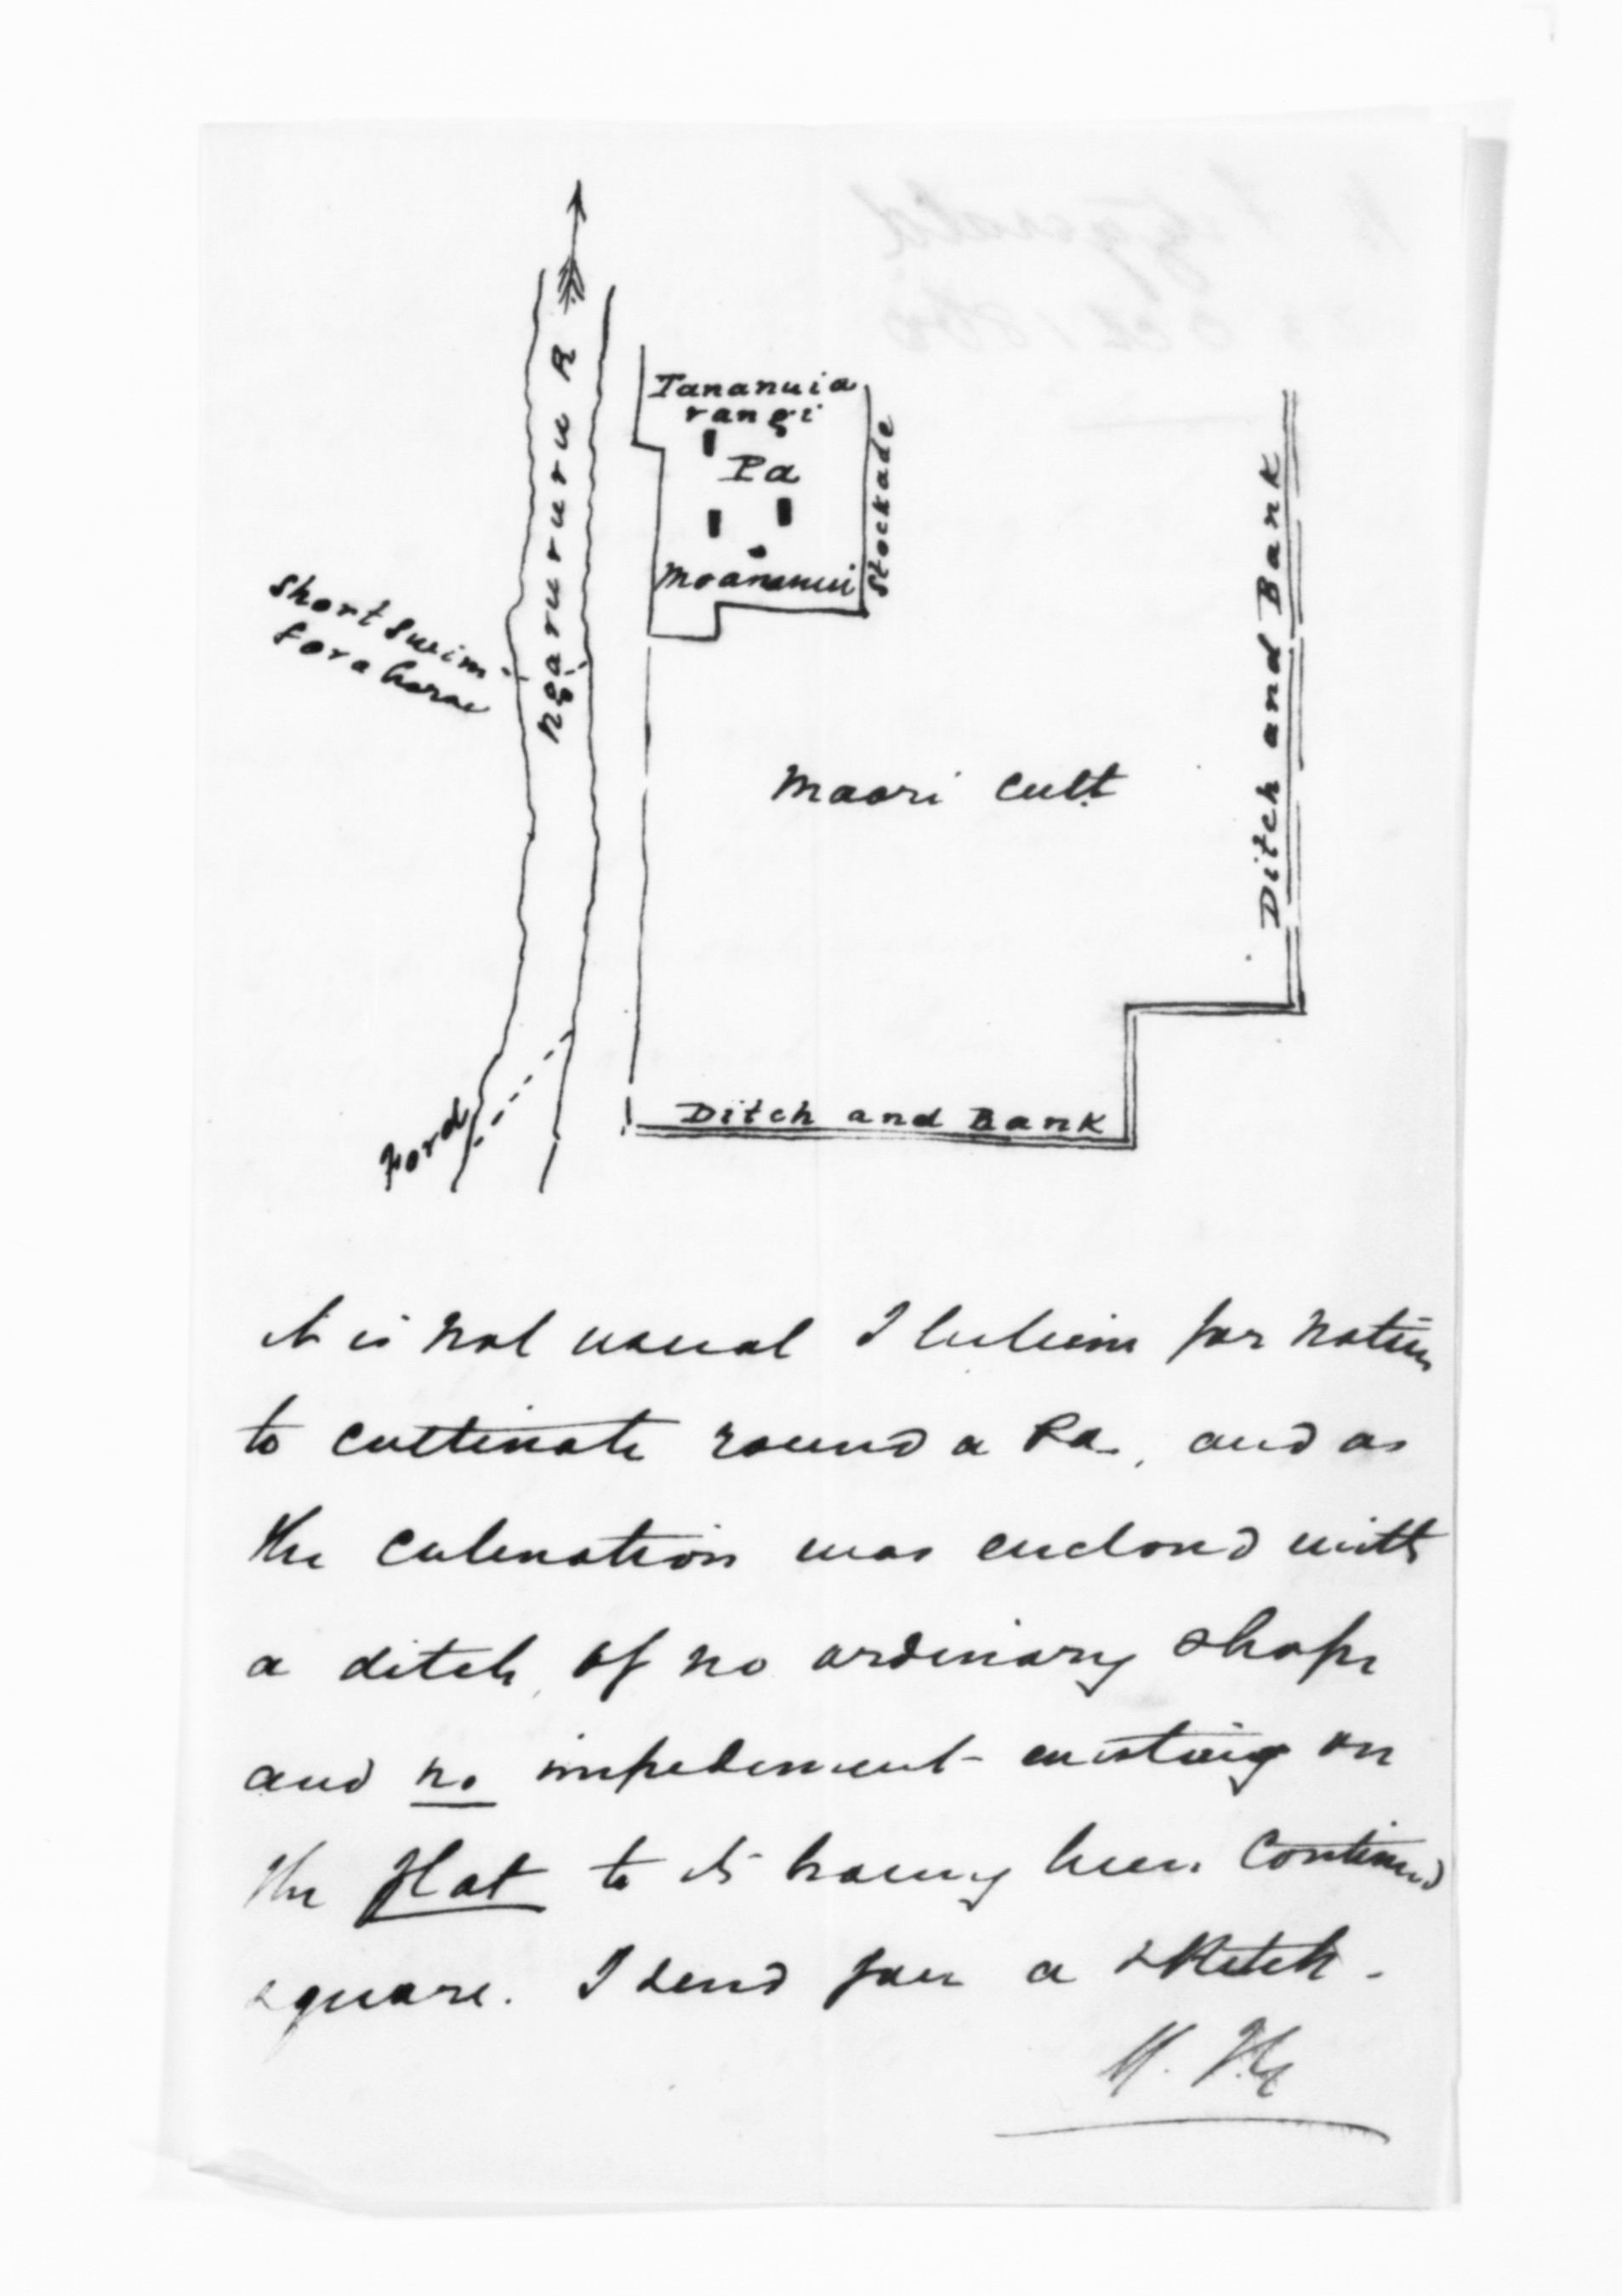 Ngaruroru R
Tananuia
rangi
Pa
Moananui
Stockade
Short swim
for a horse
Maori Cult.
Ditch and Bank
Ditch and Bank
Ford
it is not usual I believe for natives
to cultivate round a Pa, and as
the cultivation was enclosed with
a ditch, of no ordinary shape
and no impediment existing on
the flat to its having been continued
square. I send you a sketch.